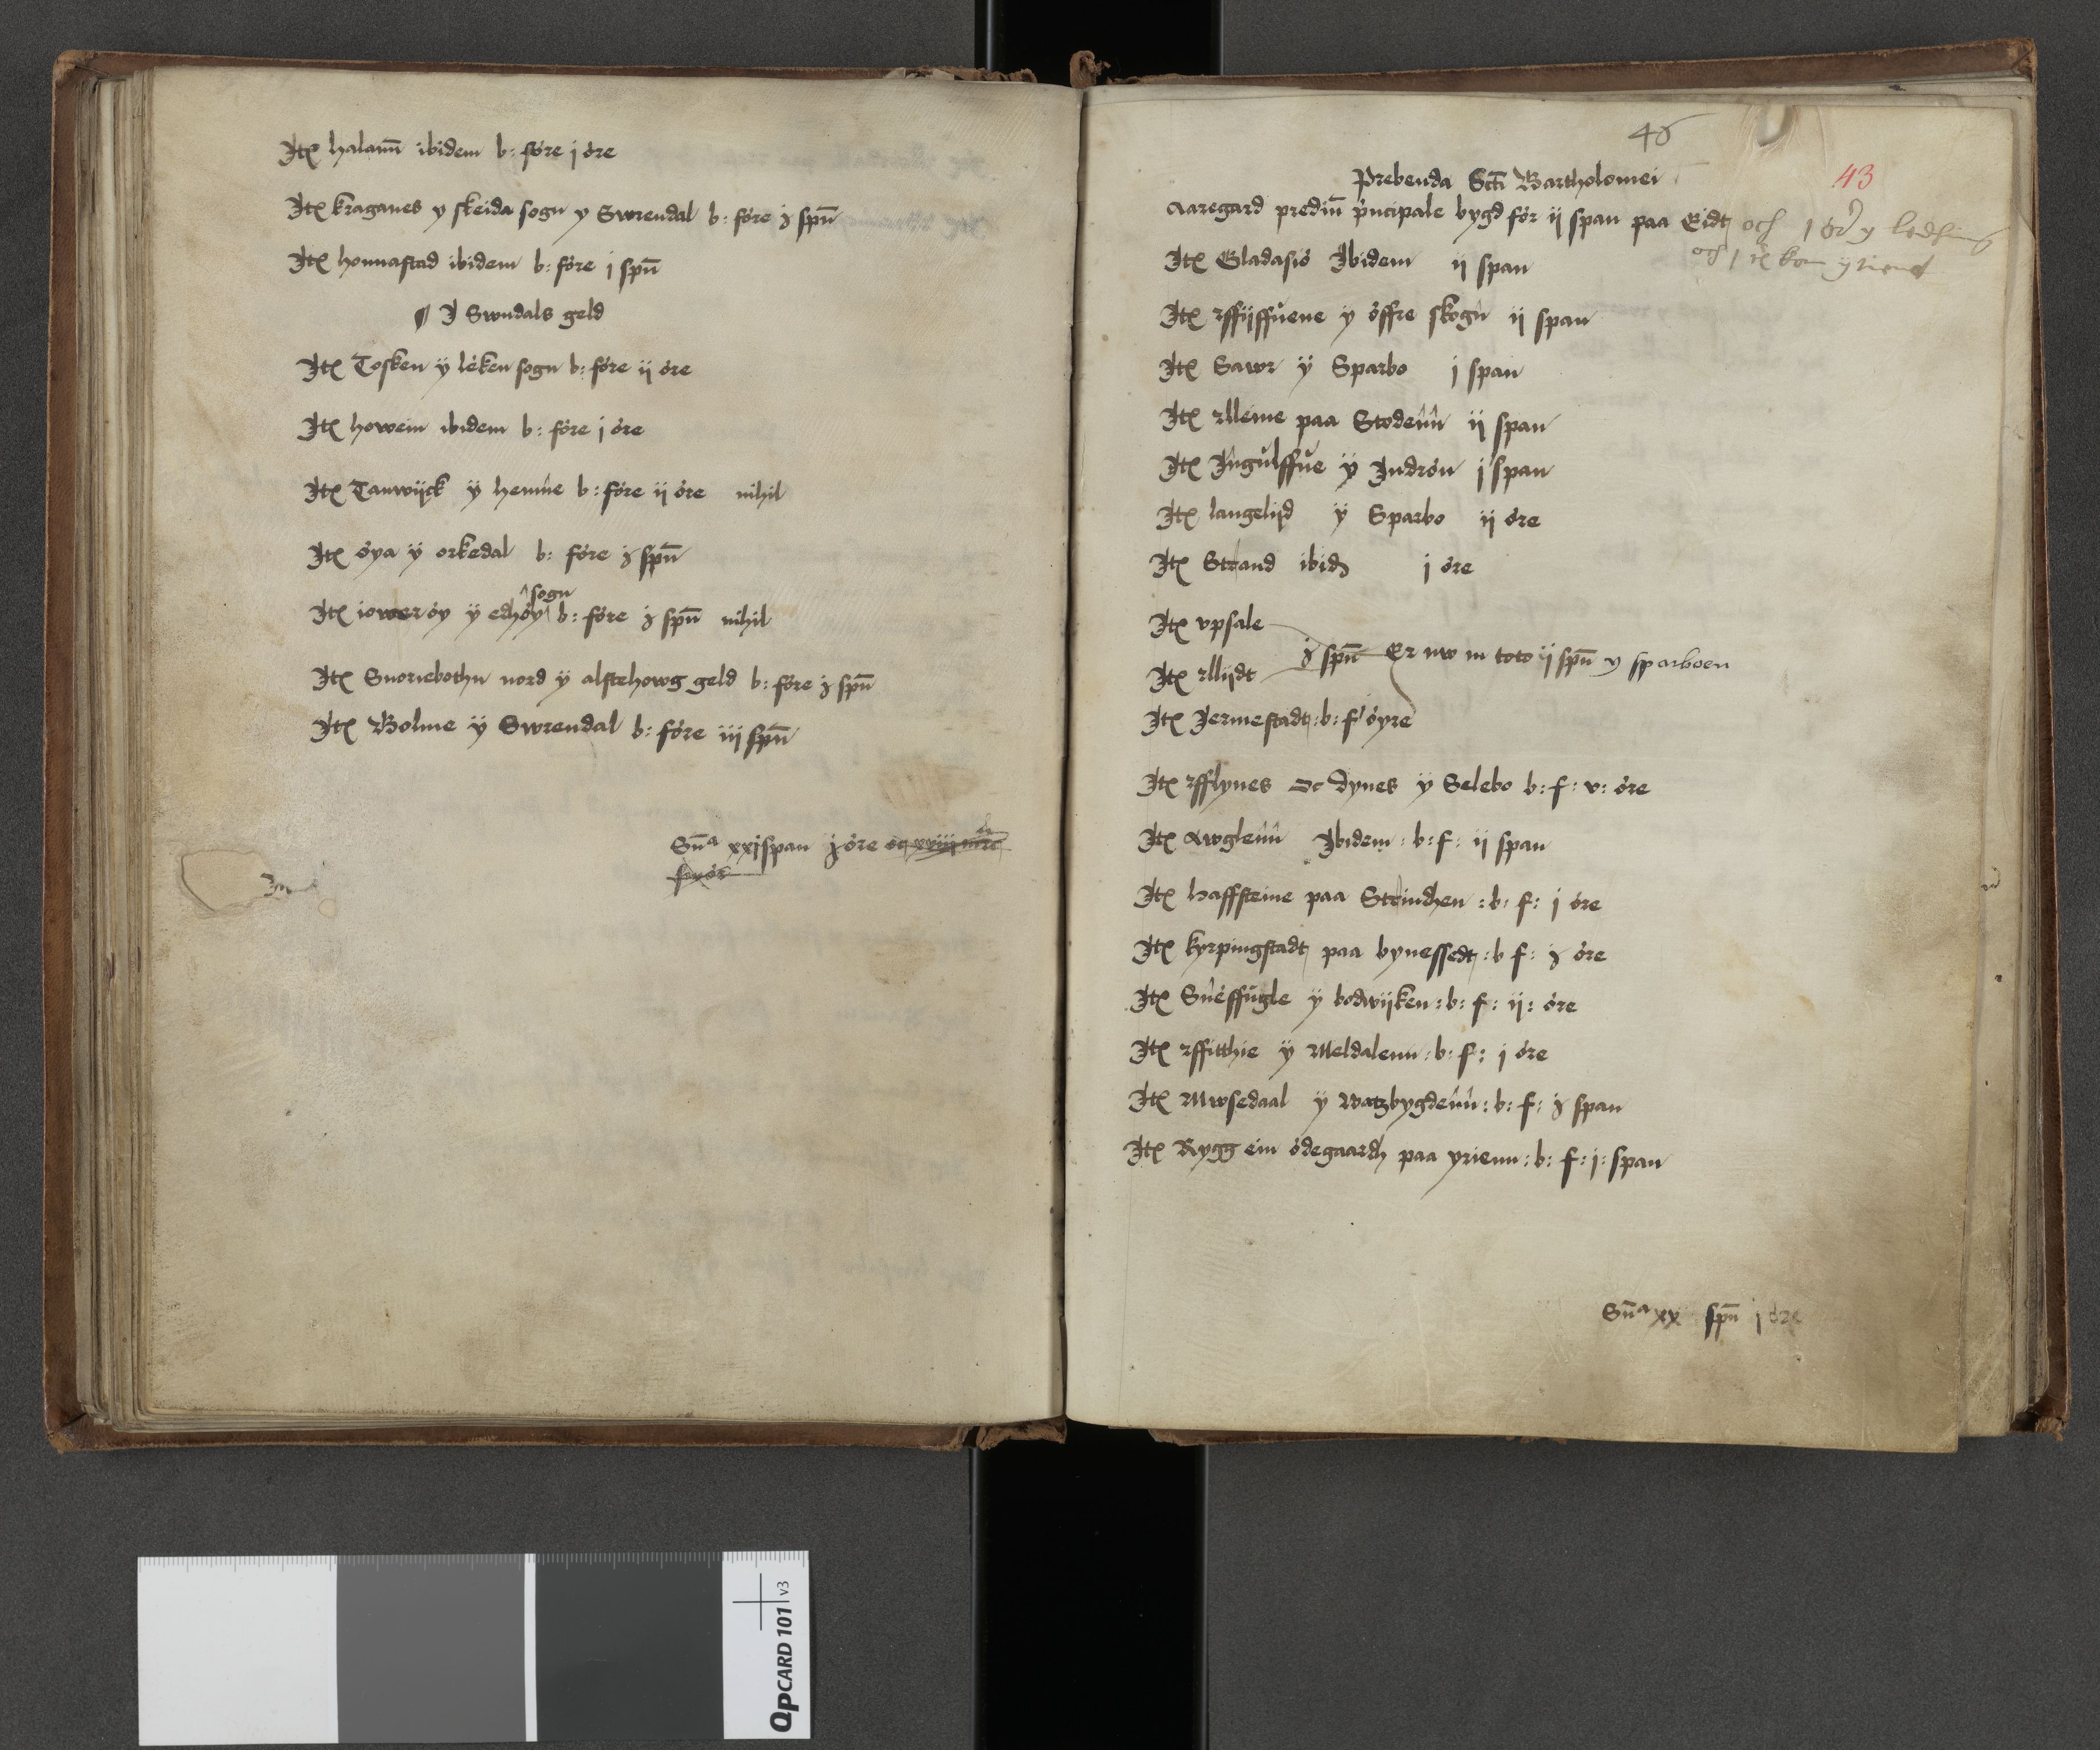 Itē halamn̄ ibidem b: före j öre
Itē kraganes y skeida sogn y Swrendal b: före ȷ spn̄
Itē honnastad ibidem b: före j spn̄
¶ I Swndals geld
Itē Tosken ÿ léken sogn b: före ij öre
Itē howein ibidem b: före j öre
Itē Tanwijck ÿ hemne b: före ij öre nihil
Itē öya ÿ orkedal b: före ȷ spn̄
sogn
Itē iower öy ÿ edhöy b: före ȷ spn̄ nihil
Itē Snoriebothn nord ÿ alstehowg geld b: före ȷ spn̄
Itē Bolme ÿ Swrendal b: före iij spn̄
Sn̄ᵃ xxj span ȷ öre
46
43
Prebenda Scti Bartholomei
Aaregard prediū p'ncipale bygd för ij span paa Eidt och 1 ör y ledhing
och 1
Itē Gladasiö Ibidem ij span
Itē rffijffuene y öffre skogn ij span
Itē Sawr ÿ Sparbo j span
Itē rlleine paa Stodenn ij span
Itē Ingulffue ÿ Indrön j span
Itē langelijd ÿ Sparbo ij öre
Itē Strand ibidȝ j öre
Itē vpsale
ȷ spn̄ Er nw in toto ij spn̄ y sparboen
Itē rllijdt
Itē Iermestadt: b: f öyre
Itē rfflynes oc dynes ÿ Selebo b: f: v: öre
Itē Awglenn Ibidem: b: f: ij span
Itē haffsteine paa Strindhen: b: f: j öre
Itē kyrpingstadt paa bynessedt: b f: ȷ öre
Itē Snéffugle ÿ bodwijken: b: f: ij: öre
Itē rffitthie ÿ Meldalenn: b: f: j öre
Itē Mwsedaal ÿ Watzbygdenn: b: f: ȷ span
Itē Rygg ein ödegaardh paa yrienn: b: f: j: span
Sn̄ᵃ xx spn̄ j öre
QpCARD 101 v3